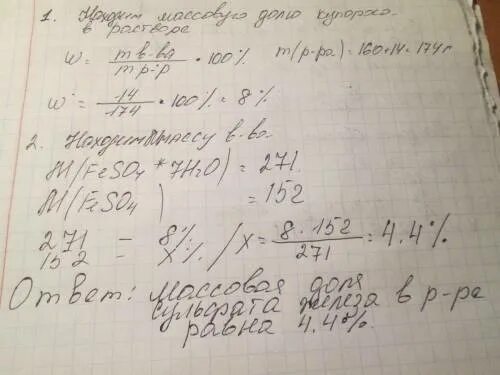 1. Находим массовую долю купороса
в растворе
w = m в-ва / m р-р • 100% m(р-ра) = 160+14 = 174 г
w = 14 / 174 • 100% = 8%
2. Находим массу в-ва
M(FeSO4 * 7H2O) = 271
M(FeSO4) = 152
271 – 8%
152 – x% / x = 8 • 152 / 271 = 4.4%
Ответ: массовая доля
сульфата железа в р-ре
равна 4.4%.